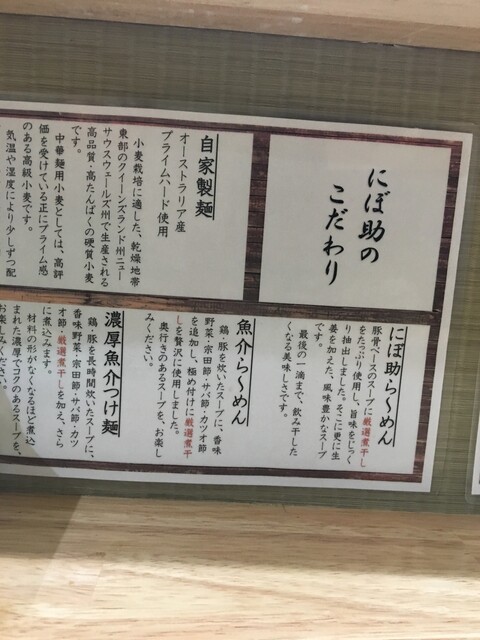 にぼ助の
こだわり
自家製麺
オーストラリア産
プライムハード使用
小麦栽培に適した、乾燥地帯
東部のクイーンズランド州ニュー
サウスウェールズ州で生産される
高品質・高たんぱくの硬質小麦
です。
中華麺用小麦としては、高評
価を受けている正にプライム感
のある高級小麦です。
気温や湿度により少しずつ配
にぼ助らーめん
豚骨ベースのスープに厳選煮干し
をたっぷり使用し、旨味をじっく
り抽出しました。そこに更に生
姜を加えた、風味豊かなスープ
です。
最後の一滴まで、飲み干した
くなる美味しさです。
魚介らーめん
鶏、豚を炊いたスープに、香味
野菜・宗田節・サバ節・カツオ節
を追加し、極め付けに厳選煮干
しを贅沢に使用しました。
奥行きのあるスープを、お楽し
みください。
濃厚魚介つけ麺
鶏、豚を長時間炊いたスープに、
香味野菜・宗田節・サバ節・カツ
オ節・厳選煮干しを加え、さら
に煮込みます。
材料の形がなくなるほど煮込
まれた濃厚でコクのあるスープを、
お楽しみください。